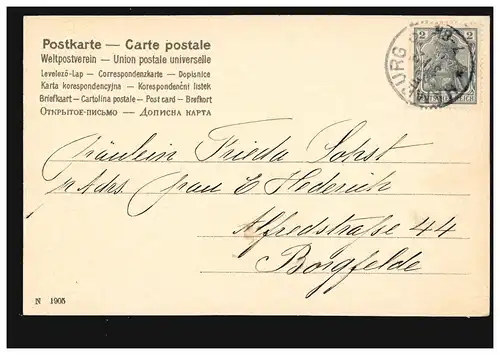 Postkarte — Carte postale
Weltpostverein — Union postale universelle
Levelező-Lap — Correspondenzkarte — Dopisnice
Karta korespondencyjna — Korespondenční listek
Briefkaart — Cartolina postale — Post card — Brefkort
Открытое-письмо — Дописна карта
2 2
Fräulein Frieda Sohst
p. Adrs. Frau E Hederich
Alfredstraße 44
Borgfelde
N 1905